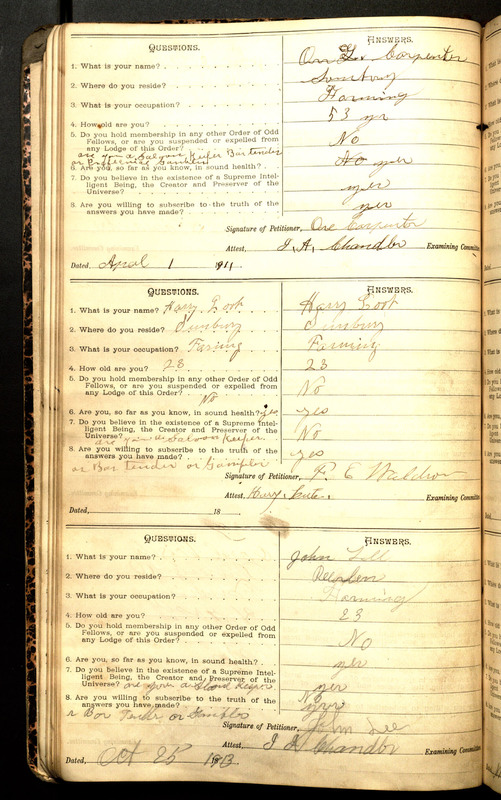 QUESTIONS. ANSWERS.
1. What is your name? Carpenter
2. Where do you reside? Sunbury
3. What is your occupation? Farming
4. How old are you? 53 yr
5. Do you hold membership in any other Order of Odd
Fellows, or are you suspended or expelled from
any Lodge of this Order? No
are you a Saloon Keeper Bar tender
or
6. Are you, so far as you know, in sound health? yer
7. Do you believe in the existence of a Supreme Intel-
ligent Being, the Creator and Preserver of the
Universe? yer
8. Are you willing to subscribe to the truth of the
answers you have made? yer
Signature of Petitioner, Carpenter
Attest, J. A. Chandler Examining Committee
Dated, April 1 1911
QUESTIONS. ANSWERS.
1. What is your name? Harry Harry
2. Where do you reside? Sunbury Sunbury
3. What is your occupation?
4. How old are you? 23 23
5. Do you hold membership in any other Order of Odd
Fellows, or are you suspended or expelled from
any Lodge of this Order? No No
6. Are you, so far as you know, in sound health? yes yes
7. Do you believe in the existence of a Supreme Intel-
ligent Being, the Creator and Preserver of the
Universe? No
are you a Saloon Keeper
8. Are you willing to subscribe to the truth of the
answers you have made? yes
or Bar tender or
Signature of Petitioner, E Waldron
Attest, Examining Committee
Dated, 18
QUESTIONS. ANSWERS.
1. What is your name? John
2. Where do you reside?
3. What is your occupation? Farming
4. How old are you? 23
5. Do you hold membership in any other Order of Odd
Fellows, or are you suspended or expelled from
any Lodge of this Order? No
6. Are you, so far as you know, in sound health? yer
7. Do you believe in the existence of a Supreme Intel-
ligent Being, the Creator and Preserver of the
Universe? are you a yer
8. Are you willing to subscribe to the truth of the No
answers you have made? yer
Bar Tender or
Signature of Petitioner, John Lee
Attest, J A Chandler Examining Committee
Dated, Oct 25 1913